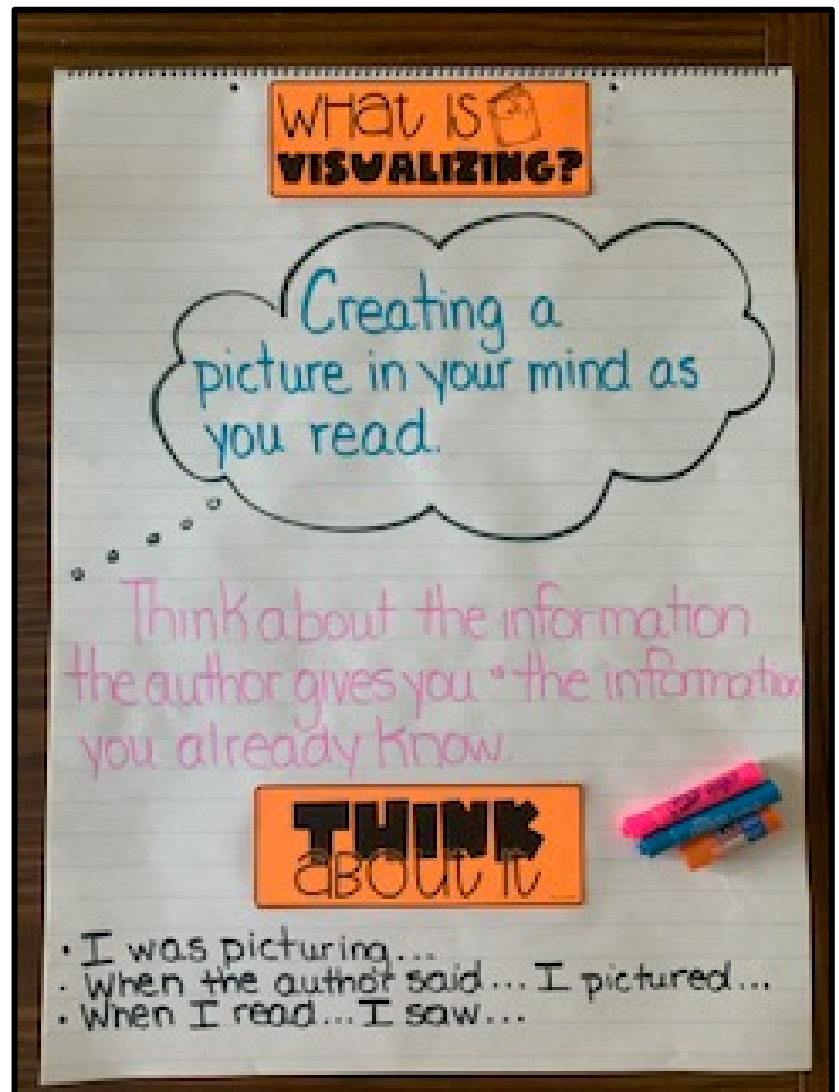 WHat IS
VISUALIZING?
Creating a
picture in your mind as
you read.
Think about the information
the author gives you + the information
you already know.
THINK
aBOUt It...
• I was picturing...
• When the author said... I pictured...
• When I read... I saw...